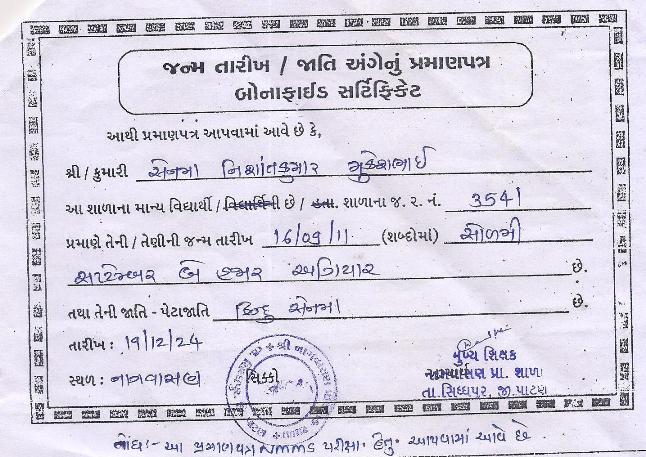 જન્મ તારીખ / જાતિ અંગેનું પ્રમાણપત્ર
બોનાફાઈડ સર્ટિફિકેટ
આથી પ્રમાણપત્ર આપવામાં આવે છે કે,
શ્રી / કુમારી સેનમા નિશાંતકુમાર મુકેશભાઈ
આ શાળાના માન્ય વિદ્યાર્થી / વિદ્યાર્થિની છે / હતા. શાળાના જ. ર. નં. 3541
પ્રમાણે તેની / તેણીની જન્મ તારીખ 16/09/11 (શબ્દોમાં) સોળમી
સપ્ટેમ્બર બે હજાર અગિયાર છે.
તથા તેની જાતિ - પેટાજાતિ હિન્દુ સેનમા છે.
તારીખ : 19/12/24
સ્થળ : નાગવાસણ સિક્કો
મુખ્ય શિક્ષક
નાગવાસણ પ્રા. શાળા
તા.સિધ્ધપુર, જી.પાટણ
નોંધ:- આ પ્રમાણપત્ર NMMS પરીક્ષા હેતુ આપવામાં આવે છે